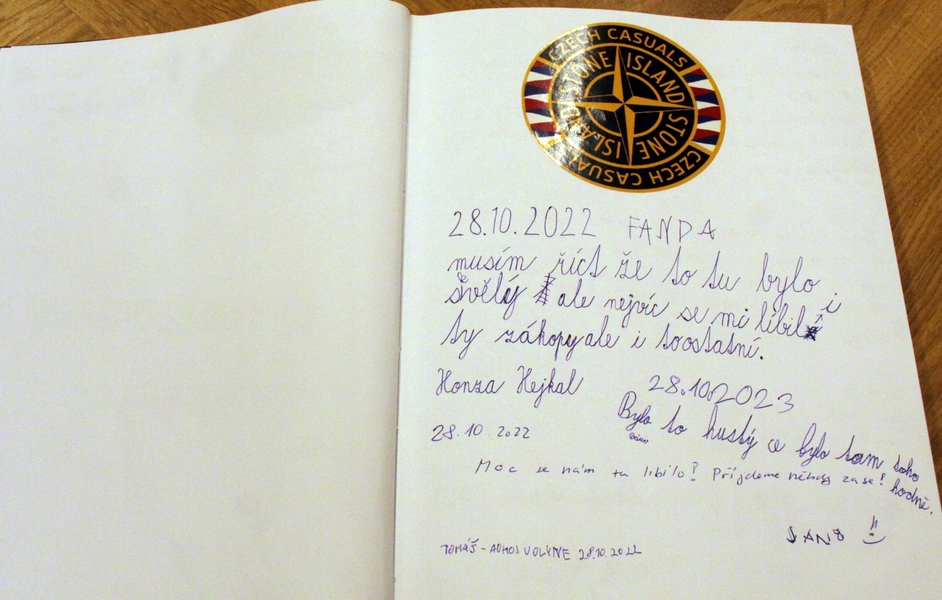 CZECH CASUALS
STONE ISLAND
STONE ISLAND
CZECH CASUALS
28.10.2022 FANDA
musím říct že to tu bylo
světlý ale nejvíc se mi líbili
ty zákopy ale i toostatní.
Honza Hejkal
28.10.2023
Bylo to hustý a bylo tam toho
hodně.
28.10.2022
Moc se nám tu libilo! Příjdeme někdy zase!
TOMÁŠ - 28.10.2022